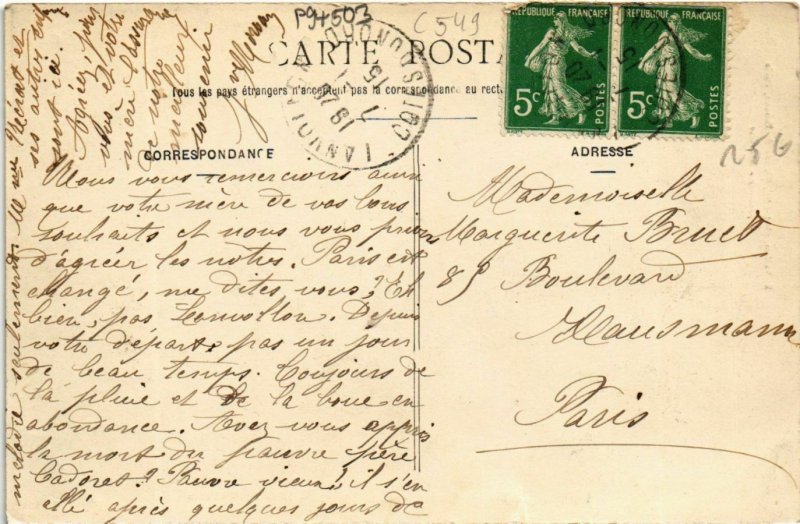 Pg+503
C 549
CARTE POSTA
Tous les pays étrangers n'acceptent pas la correspondance au rect
RÉPUBLIQUE FRANÇAISE
5c
POSTES
RÉPUBLIQUE FRANÇAISE
5c
POSTES
CORRESPONDANCE
ADRESSE
Nous vous remercions ainsi
que votre mère de vos bons
souhaits et nous vous prions
d'agréer les nôtres. Paris est
changé, me dites vous? Eh
bien, pas Lanvollon. Depuis
votre départ, pas un jour
de beau temps. Toujours de
la pluie et de la boue en
abondance. Avez vous appris
la mort du pauvre père
Cadoret? Pauvre vieux! il s'en
allé après quelques jours de
maladie seulement. Mme Nécrat et
ses autres
sont ici.
Agréez,
vous et votre
mère l'assurance
de notre
meilleur
souvenir
Mademoiselle
Marguerite Bruet
85 Boulevard
Hausmann
Paris